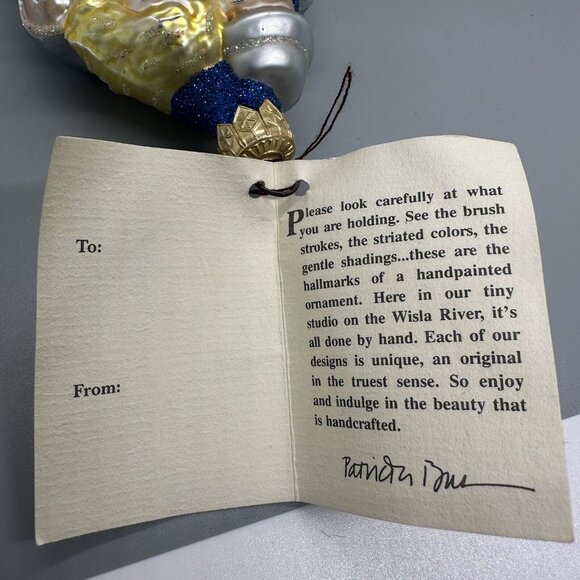 To:
From:
Please look carefully at what
you are holding. See the brush
strokes, the striated colors, the
gentle shadings...these are the
hallmarks of a handpainted
ornament. Here in our tiny
studio on the Wisla River, it's
all done by hand. Each of our
designs is unique, an original
in the truest sense. So enjoy
and indulge in the beauty that
is handcrafted.